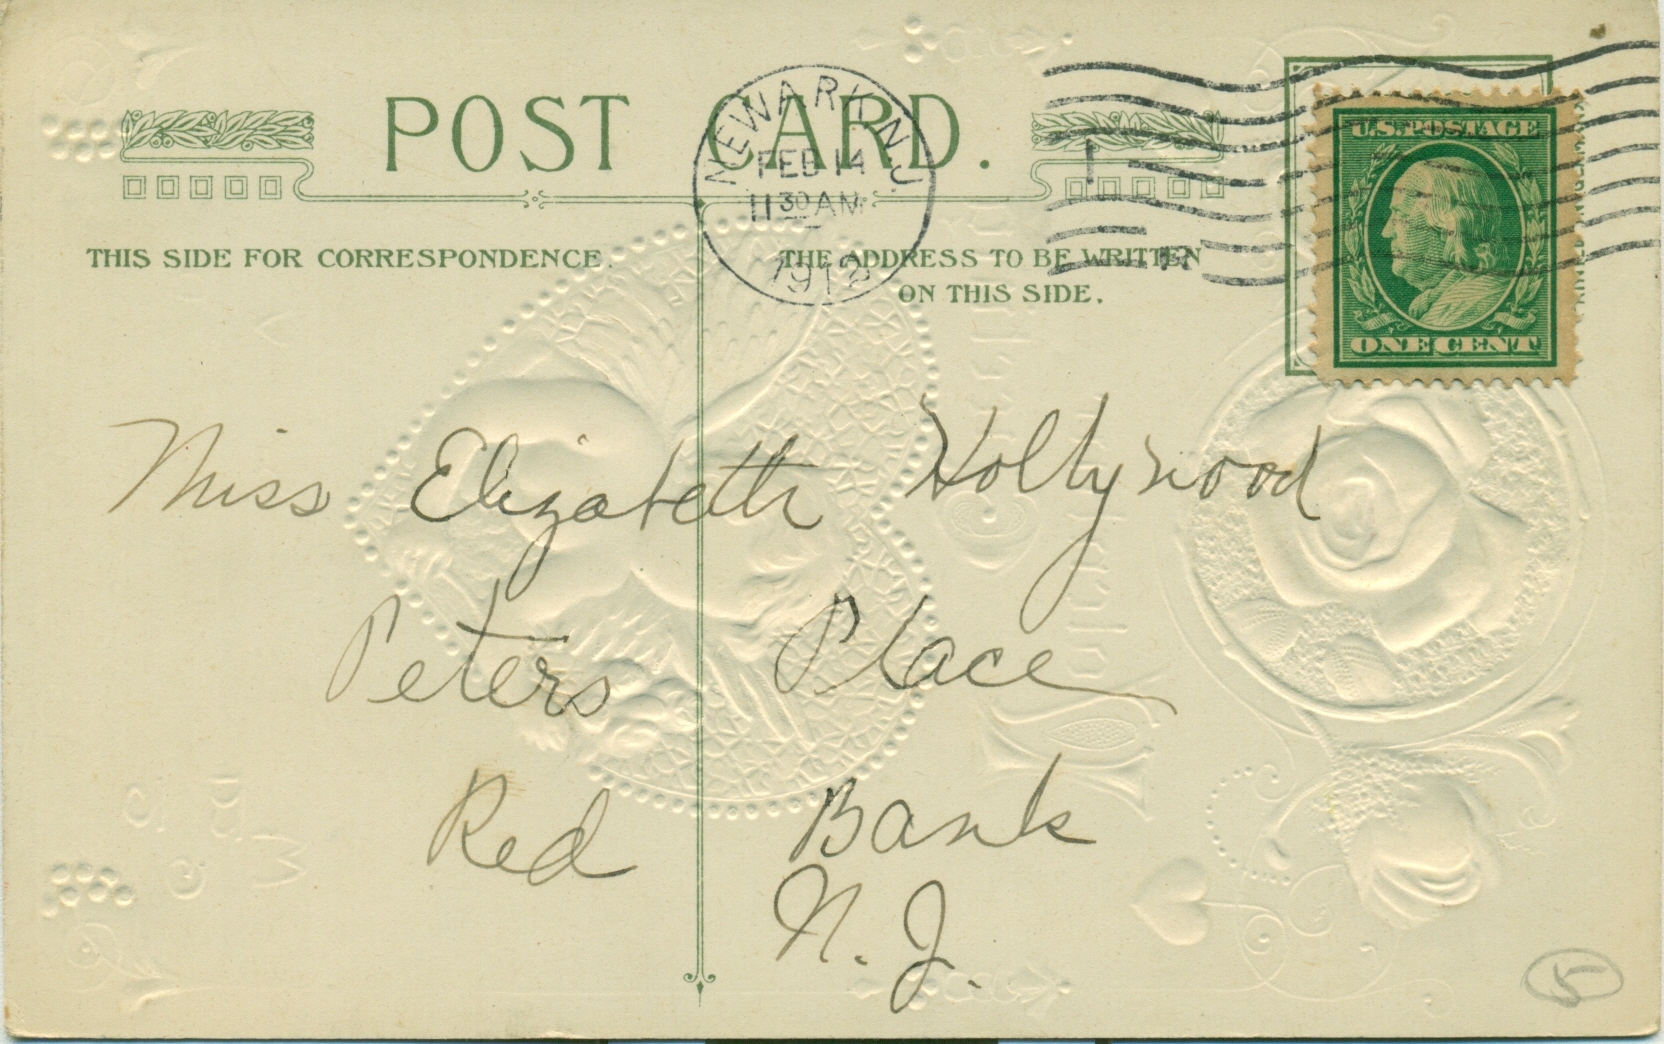 POST CARD.
NEWARK, N.J.
FEB 14
11 30 AM
1912
U.S. POSTAGE
ONE CENT
THIS SIDE FOR CORRESPONDENCE.
THE ADDRESS TO BE WRITTEN
ON THIS SIDE.
Miss Elizabeth Hollywood
Peters Place
Red Bank
N. J.
5